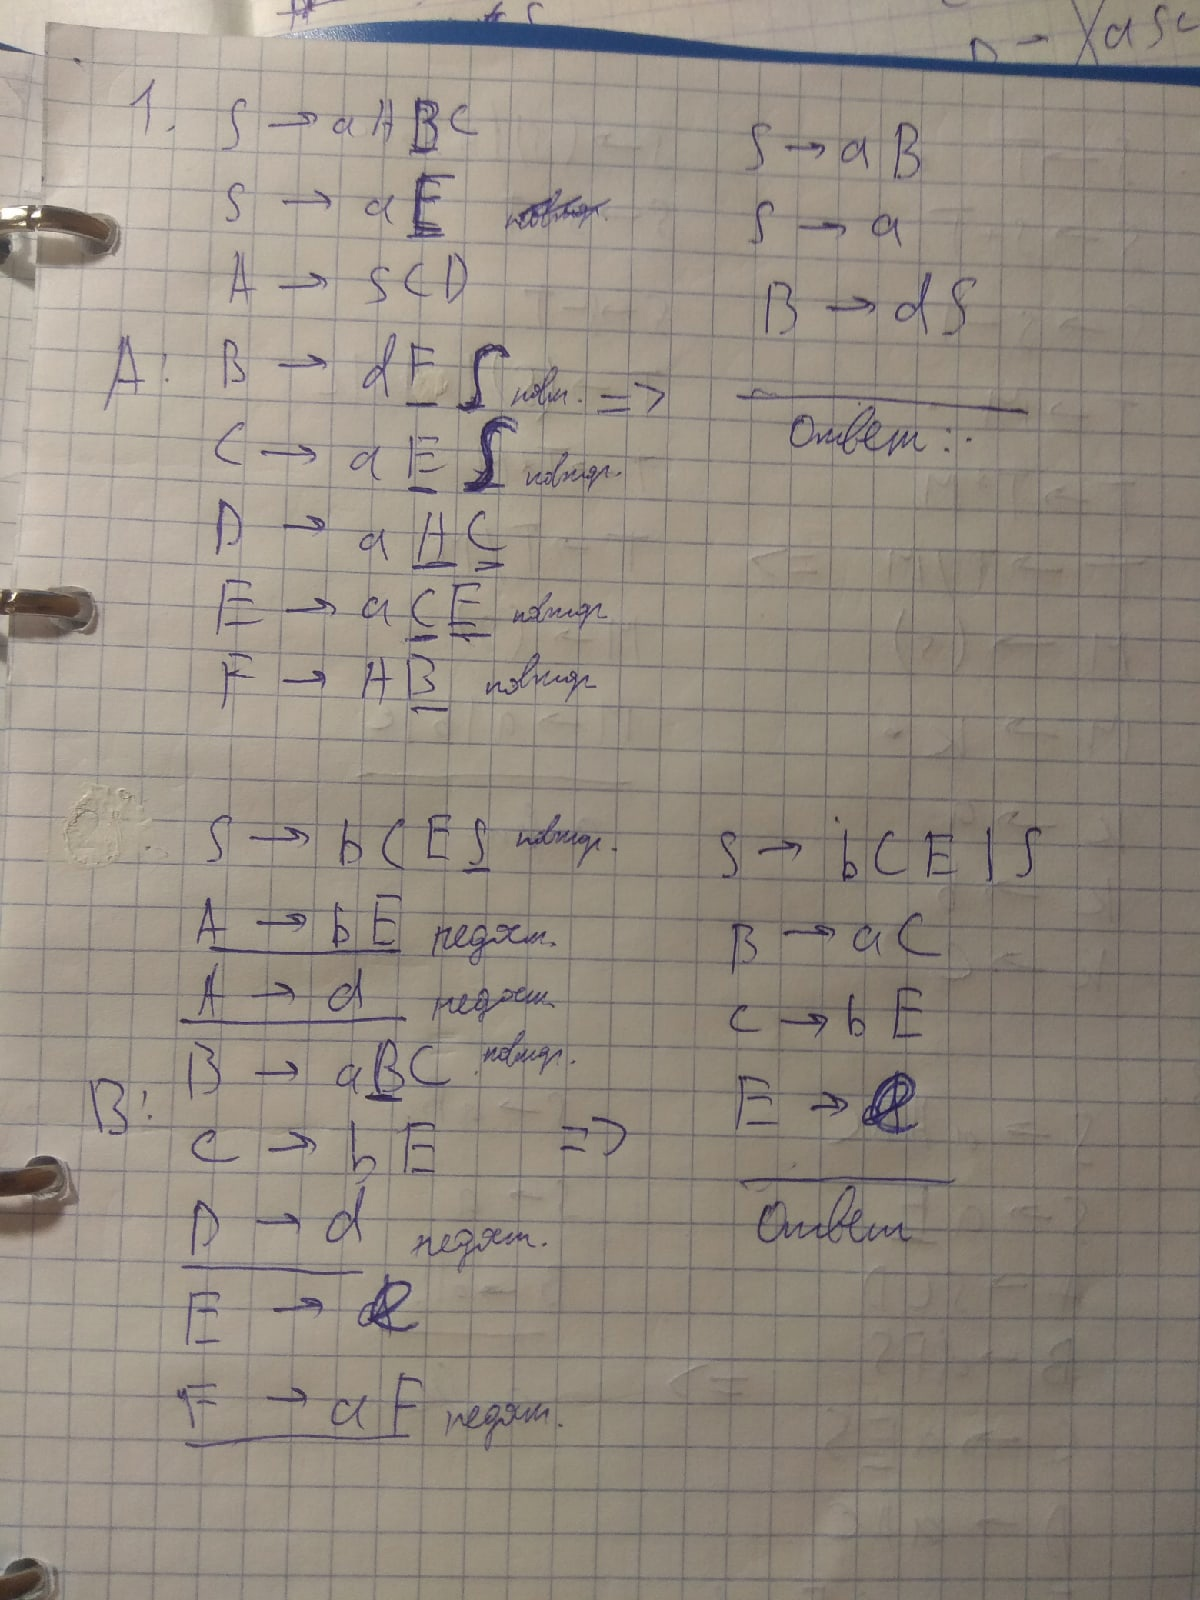 1. S → aABC
S → aE
A → SCD
A: B → dFS повт. =>
C → aES повтор.
D → aAC
E → aCE повтор
F → AB повтор
S → aB
S → a
B → dS
Ответ:
S → bCES повтор.
A → bE недост.
A → d недост.
B → aBC повтор.
B:
C → bE =>
D → d недост.
E →
F → aF недост.
S → bCE | S
B → aC
C → bE
E →
Ответ